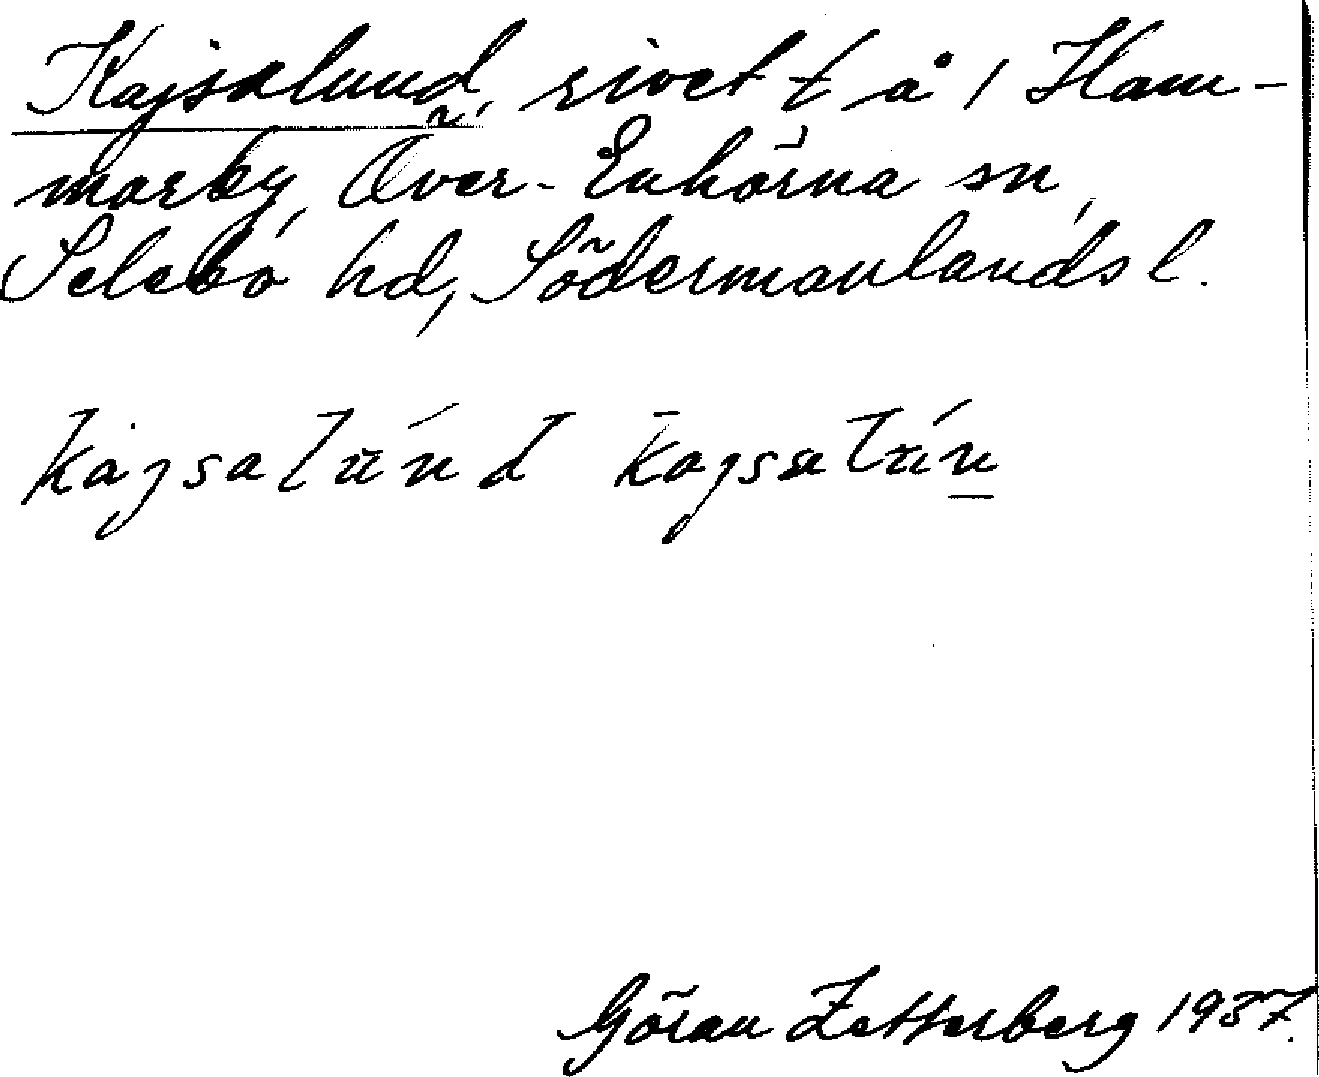 Kajsalund, rivet t å 1 Ham-
marby, Över-Enhörna sn,
Selebo hd, Södermanlands l.
kajsalund kajsalun
Göran Zetterberg 1937.